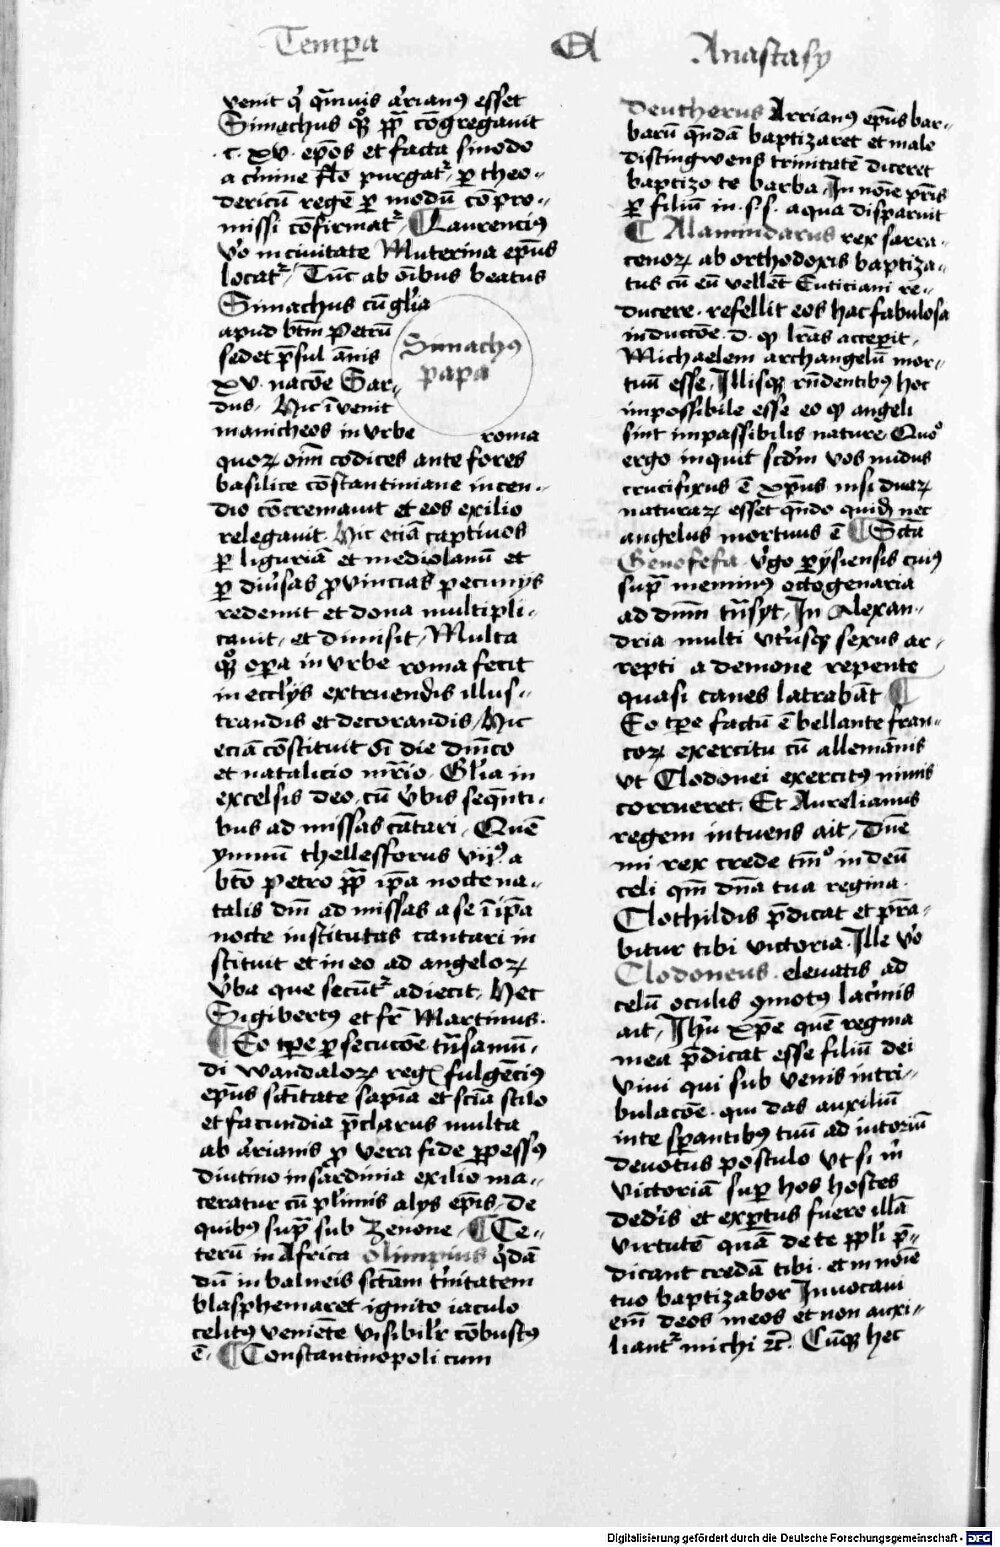 Tempa A Anastasy
venit q̄ q̄muis arrianꝰ esset
Simachus qꝫ pp̄ cōgregauit
.c. xv. ep̄os et facta sinodo
a c̄mine purgatr̄ ꝑ theo-
dericū regē ꝑ modū cōpro-
missi cōfirmatr̄ ¶ Laurenciꝰ
v̄o in ciuitate Muterina ep̄us
locatr̄ Tūc ab oībus beatus
Simachus cū gl̄ia
apud btm̄ Petrū
sedet p̄sul ānis
xv. nacōe Sar-
dus. Hic īvenit
manicheos in vrbe roma
Simachꝰ
papa
quoꝝ oīm codices ante fores
basilice cōstantiniane incen-
dio cōcremauit et eos exilio
relegauit Hic eciā captiuos
ꝑ liguriā et mediolanū et
ꝑ diūsas ꝓvincias pecunijs
redemit et dona multipli-
cauit et dimisit Multa
qꝫ opa in vrbe roma fecit
in eccl̄ijs extruendis illus-
trandis et decorandis Hic
eciā cōstituit oī die dm̄co
et natalicio mr̄io Gl̄ia in
excelsis deo cū v̄bis seqn̄ti-
bus ad missas cātari Quē
ymnū thellesforus vijꝰ a
bto Petro pp̄ ip̄a nocte na-
talis dm̄ ad missas a se ī ip̄a
nocte institutas cantari in
stituit et in eo ad angeloꝝ
v̄ba que secūtr̄ adiecit Hec
Sigibertꝰ et fr̄ Martinus.
¶ Eo tꝑe ꝑsecucōe tn̄samū-
di wandaloꝝ regꝭ fulgēciꝰ
ep̄us sc̄itate sapīa et sciā stilo
et facundia p̄clarus multa
ab arrianis ꝓ vera fide ꝑpessꝰ
diutino in sardinia exilio ma-
ceratur cū pl̄imis alijs ep̄is de
quibꝰ supͣ sub Zenone ¶ Ce-
terū in Africa Olimpius q̄dā
dū in balneis sctam tn̄itatem
blasphemaret ignito iaculo
celitꝰ veniēte visibilr̄ cōbustꝰ
ē. ¶ Constantinopoli cum
deutherus Arrianꝰ ep̄us bar-
barū qn̄dā baptizaret et male
distingwens trinitatē diceret
baptizo te barba In noīe pr̄is
ꝑ filiū in .s.s. aqua disparuit
¶ Alamindarus rex sarra-
cenoꝝ ab orthodoxis baptiza-
tus cū eū vellēt Euticiani re-
ducere. refellit eos hac fabulosa
inductōe .d. qꝫ lr̄as acceperit
Michaelem archangelū mor-
tuū esse Illisqꝫ rn̄dentibꝰ hoc
impossibile esse eo qꝫ angeli
sint impassibilis nature Quoͦ
ergo inquit scdm̄ vos nudus
crucifixus ē xp̄us nisi duaꝝ
naturaꝝ esset qn̄do quidē nec
angelus mortuus ē ¶ Scta
Genofefa v̄go ꝑysiensis cuiꝰ
supͣ meminꝰ octogenaria
ad dnm̄ tn̄sijt In Alexan-
dria multi vtiusqꝫ sexus ar-
repti a demone repente
quasi canes latrabāt ¶
Eo tꝑe factū ē bellante fran-
coꝝ exercitu cū allemānis
vt Clodouei exercitꝰ nimis
corrueret. Et Aurelianus
regem intuens ait Dn̄e
mi rex crede tm̄o in deū
celi qm̄ dn̄a tua regina
Clothildis p̄dicat et p̄ra-
bitur tibi victoria Ille v̄o
Clodoueus. eleuatis ad
celū oculis ꝯmotꝰ lac̄mis
ait Ihū xp̄e quē regina
mea p̄dicat esse filiū dei
viui qui sub venis intri-
bulacōe. qui das auxiliū
in te sperantibꝰ tuū adiutoriū
deuotus postulo vt si m̄
victoriā supꝑ hos hostes
deder̄is et expertus fuero illā
virtutē quā de te ppl̄i p̄-
dicant credā tibi. et in noīe
tuo baptizabor Inuocaui
em̄ deos meos et non auxi-
liantr̄ michi ⁊c̄. Cūqꝫ hec
Digitalisierung gefördert durch die Deutsche Forschungsgemeinschaft - DFG